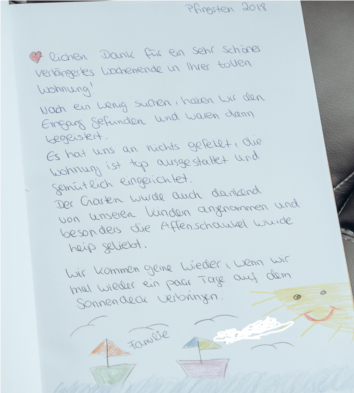 Pfingsten 2018
lichen Dank für ein sehr schönes
verlängertes Wochenende in Ihrer tollen
Wohnung!
Nach ein wenig suchen, haben wir den
Eingang gefunden und waren dann
begeistert.
Es hat uns an nichts gefehlt, die
Wohnung ist top ausgestattet und
gemütlich eingerichtet.
Der Garten wurde auch dankend
von unseren Kindern angenommen und
besonders die Affenschaukel wurde
heiß geliebt.
Wir kommen gerne wieder, wenn wir
mal wieder ein paar Tage auf dem
Sonnendeck verbringen.
Familie